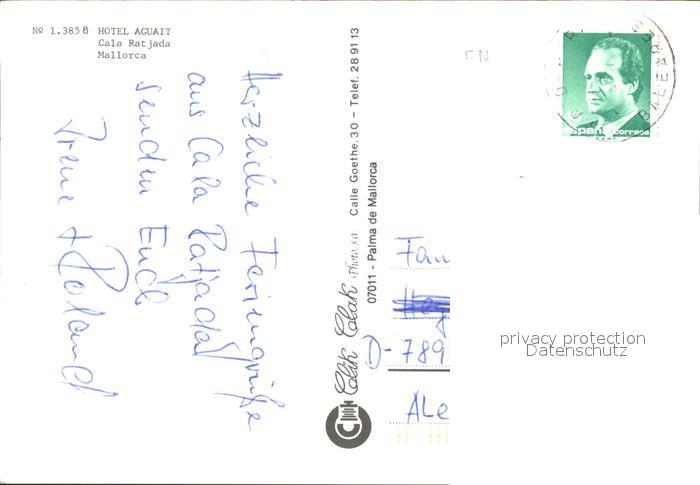 Nº 1.385 B HOTEL AGUAIT
Cala Ratjada
Mallorca
Herzliche Feriengrüße
aus Cala Ratjada
senden Euch
Irene + Roland
Clik Clak Photo, s.a. Calle Goethe, 30 – Telef. 28 91 13
07011 - Palma de Mallorca
España correos
BALEARE
Fam
D-789
Ale
privacy protection
Datenschutz